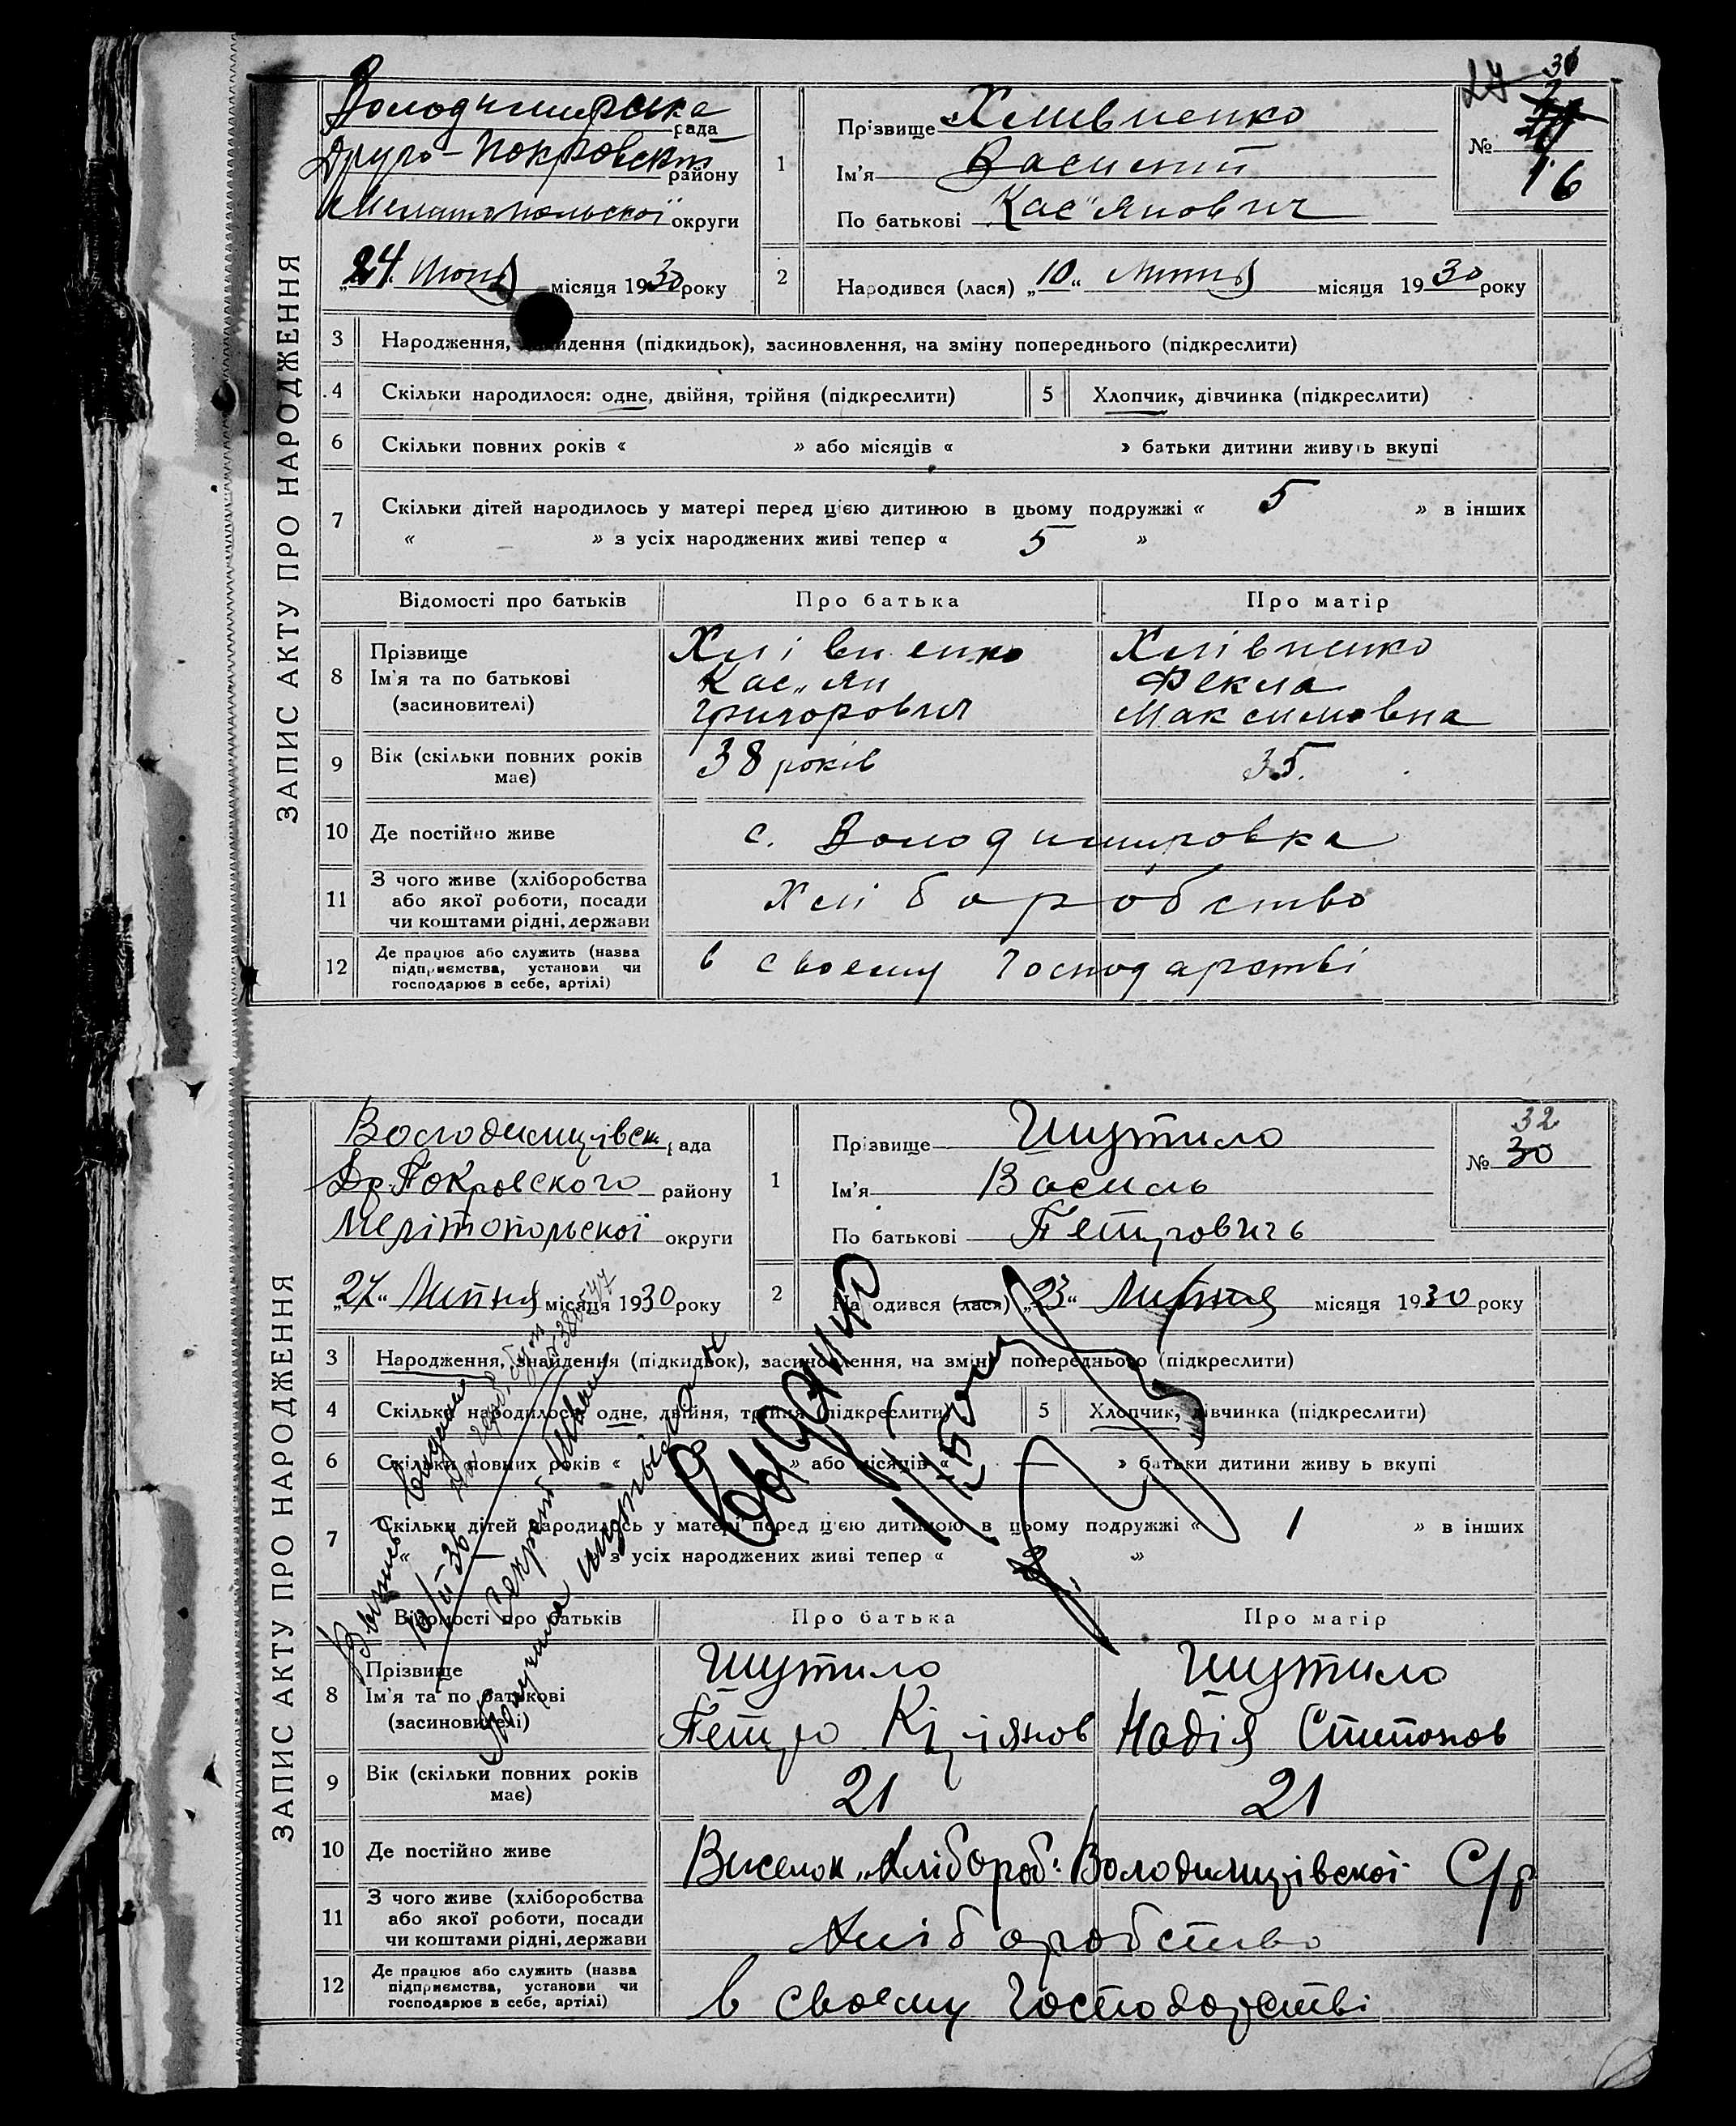 ЗАПИС АКТУ ПРО НАРОДЖЕННЯ
Володимирська рада
Друго-Покровськ району
Мелитопольскої округи
„24“ июня місяця 1930 року
1 Прізвище Хливненко
Ім'я Василий
По батькові Кас"янович
27 31
№ 16
2 Народився (лася) „10“ липня місяця 1930 року
3 Народження, знайдення (підкидьок), засиновлення, на зміну попереднього (підкреслити)
4 Скільки народилося: одне, двійня, трійня (підкреслити) 5 Хлопчик, дівчинка (підкреслити)
6 Скільки повних років « » або місяців « » батьки дитини живуть вкупі
7 Скільки дітей народилось у матері перед цією дитиною в цьому подружжі « 5 » в інших
« » з усіх народжених живі тепер « 5 »
Відомості про батьків Про батька Про матір
8 Прізвище Хлівненко Хлівненко
Ім'я та по батькові Кас„ян Фекла
(засиновителі) Григорович Максимовна
9 Вік (скільки повних років має) 38 років 35.
10 Де постійно живе с. Володимировка
11 З чого живе (хліборобства або якої роботи, посади чи коштами рідні, держави Хліборобство
12 Де працює або служить (назва підприємства, установи чи господарює в себе, артілі) в своему господарстві
ЗАПИС АКТУ ПРО НАРОДЖЕННЯ
Володимирівськ рада
Др. Покровского району
Мелітопольскої округи
„27“ Липня місяця 1930 року
1 Прізвище Шутило
Ім'я Василь
По батькові Петровичь
32
№ 30
2 Народився (лася) „23“ Липня місяця 1930 року
3 Народження, знайдення (підкидьок), засиновлення, на зміну попереднього (підкреслити)
4 Скільки народилося: одне, двійня, трійня (підкреслити) 5 Хлопчик, дівчинка (підкреслити)
6 Скільки повних років « » або місяців « — » батьки дитини живу ь вкупі
7 Скільки дітей народилось у матері перед цією дитиною в цьому подружжі « 1 » в інших
« » з усіх народжених живі тепер « »
Відомості про батьків Про батька Про матір
8 Прізвище Шутило Шутило
Ім'я та по батькові Петро Кіріянов Надія Степанов
(засиновителі)
9 Вік (скільки повних років має) 21 21
10 Де постійно живе Виселок „Хлібороб“ Володимирівскої С/р
11 З чого живе (хліборобства або якої роботи, посади чи коштами рідні, держави Хліборобство
12 Де працює або служить (назва підприємства, установи чи господарює в себе, артілі) в своему господарстві